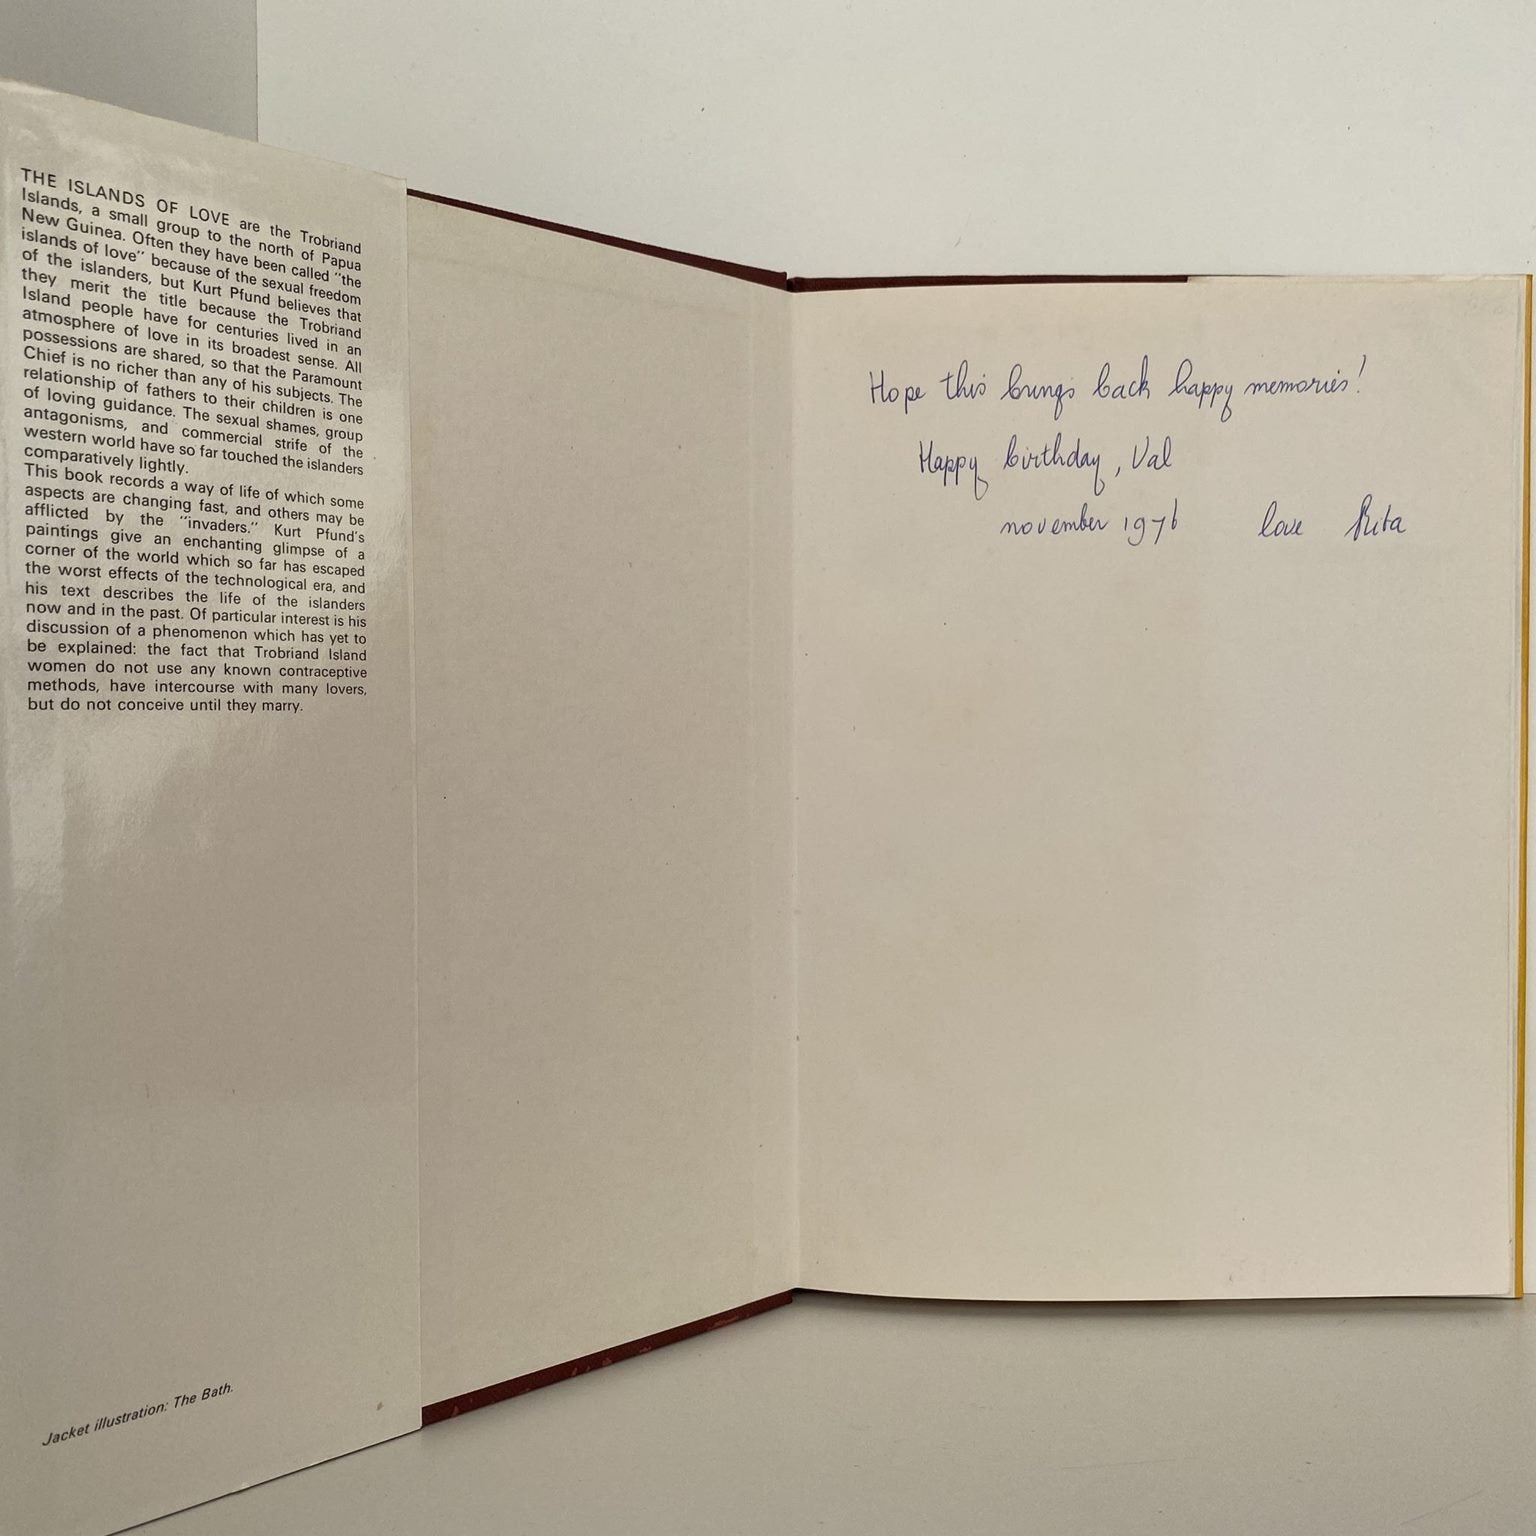 THE ISLANDS OF LOVE are the Trobriand
Islands, a small group to the north of Papua
New Guinea. Often they have been called "the
islands of love" because of the sexual freedom
of the islanders, but Kurt Pfund believes that
they merit the title because the Trobriand
Island people have for centuries lived in an
atmosphere of love in its broadest sense. All
possessions are shared, so that the Paramount
Chief is no richer than any of his subjects. The
relationship of fathers to their children is one
of loving guidance. The sexual shames, group
antagonisms, and commercial strife of the
western world have so far touched the islanders
comparatively lightly.
This book records a way of life of which some
aspects are changing fast, and others may be
afflicted by the "invaders." Kurt Pfund's
paintings give an enchanting glimpse of a
corner of the world which so far has escaped
the worst effects of the technological era, and
his text describes the life of the islanders
now and in the past. Of particular interest is his
discussion of a phenomenon which has yet to
be explained: the fact that Trobriand Island
women do not use any known contraceptive
methods, have intercourse with many lovers,
but do not conceive until they marry.
Jacket illustration: The Bath.
Hope this brings back happy memories!
Happy birthday, Val
november 1976 love Rita